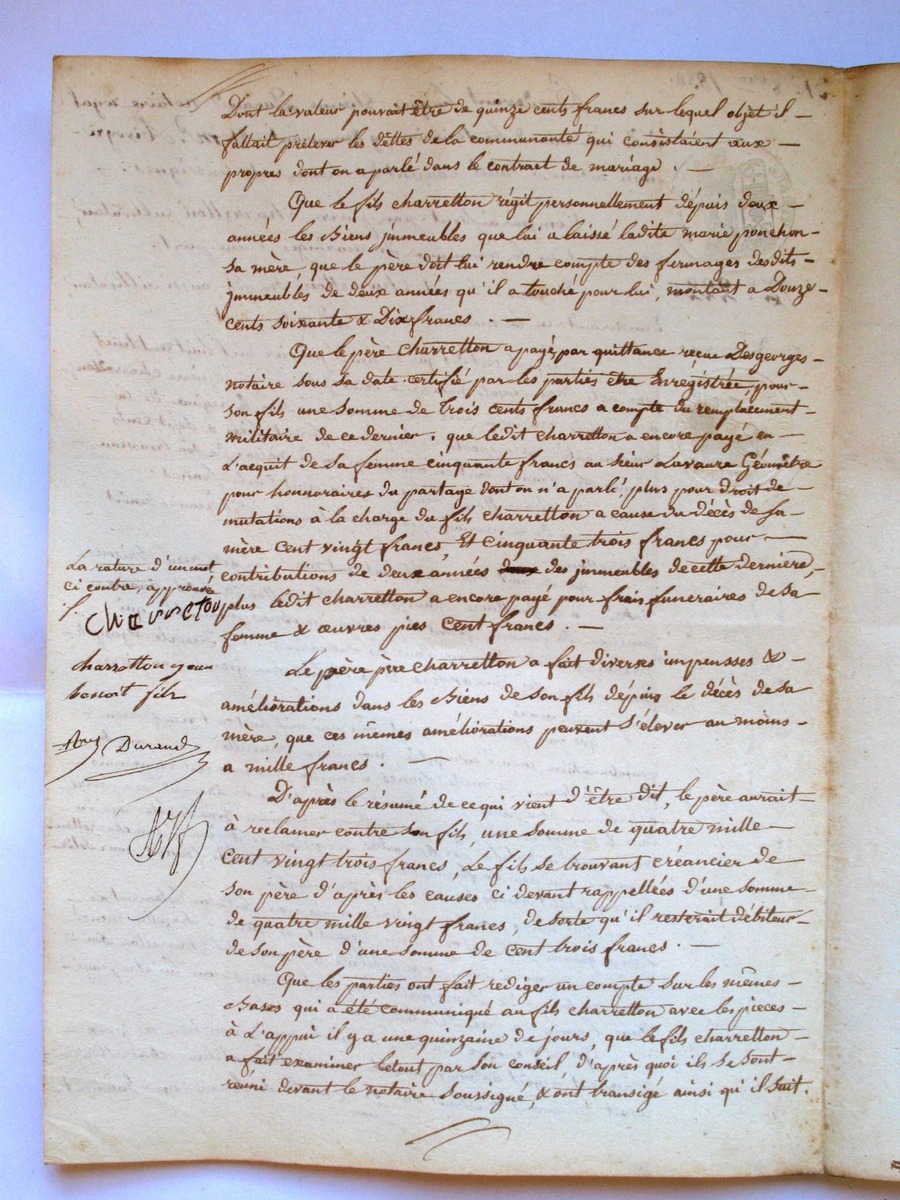 Dont la valeur pouvait être de quinze cents francs sur lequel objet il
fallait prélever les dêttes de la communauté qui consistaient aux
propres dont on a parlé dans le contract de mariage.
Que le fils charretton régit personnellement dépuis deux
années les Biens jmmeubles que lui a laissé ladite marie ponchon
sa mère, que le père doit lui rendre compte des fermages desdits
jmmeubles de deux années qu'il a touché pour lui, montant a Douze
cents soixante & Dix francs.
Que le père charretton a payé, par quittance reçue Desgeorges
notaire sous sa date certifié par les parties être Enregistrée, pour
son fils une somme de trois cents francs a compte du remplacement
militaire de ce dernier. que ledit charretton a encore payé en
L'acquit de sa femme cinquante francs au sieur Lavaure Géomètre
pour honnoraires du partage dont on n'a parlé, plus pour droit de
mutations à la charge du fils charretton a cause du décès de sa
mère cent vingt francs, Et cinquante trois francs pour
contributions de deux années des jmmeubles de cette dernière,
plus ledit charretton a encore payé pour frais funéraires de sa
femme & œuvres pies cent francs.
Le père père charretton a fait diverses impensses &
améliorations dans les Biens de son fils dépuis le décès de sa
mère, que ces mêmes améliorations peuvent s'élever au moins
a mille francs.
D'après le résumé de ce qui vient d'être dit, le père aurait
à réclamer contre son fils, une somme de quatre mille
cent vingt trois francs, Le fils se trouvant créancier de
son père d'après les causes ci devant rappellées d'une somme
de quatre mille vingt francs, de sorte qu'il resterait débiteur
de son père d'une somme de cent trois francs.
Que les parties ont fait rediger un compte sur les mêmes
Bases qui a été communiqué au fils charretton avec les pièces
à L'appui il y a une quinzaine de jours, que le fils charretton
a fait examiner le tout par son conseil, d'après quoi ils se sont
réuni devant le notaire soussigné, & ont transigé ainsi qu'il suit.
La rature d'un mot
ci contre, approuvée
charretton jean
benoit fils
Durand